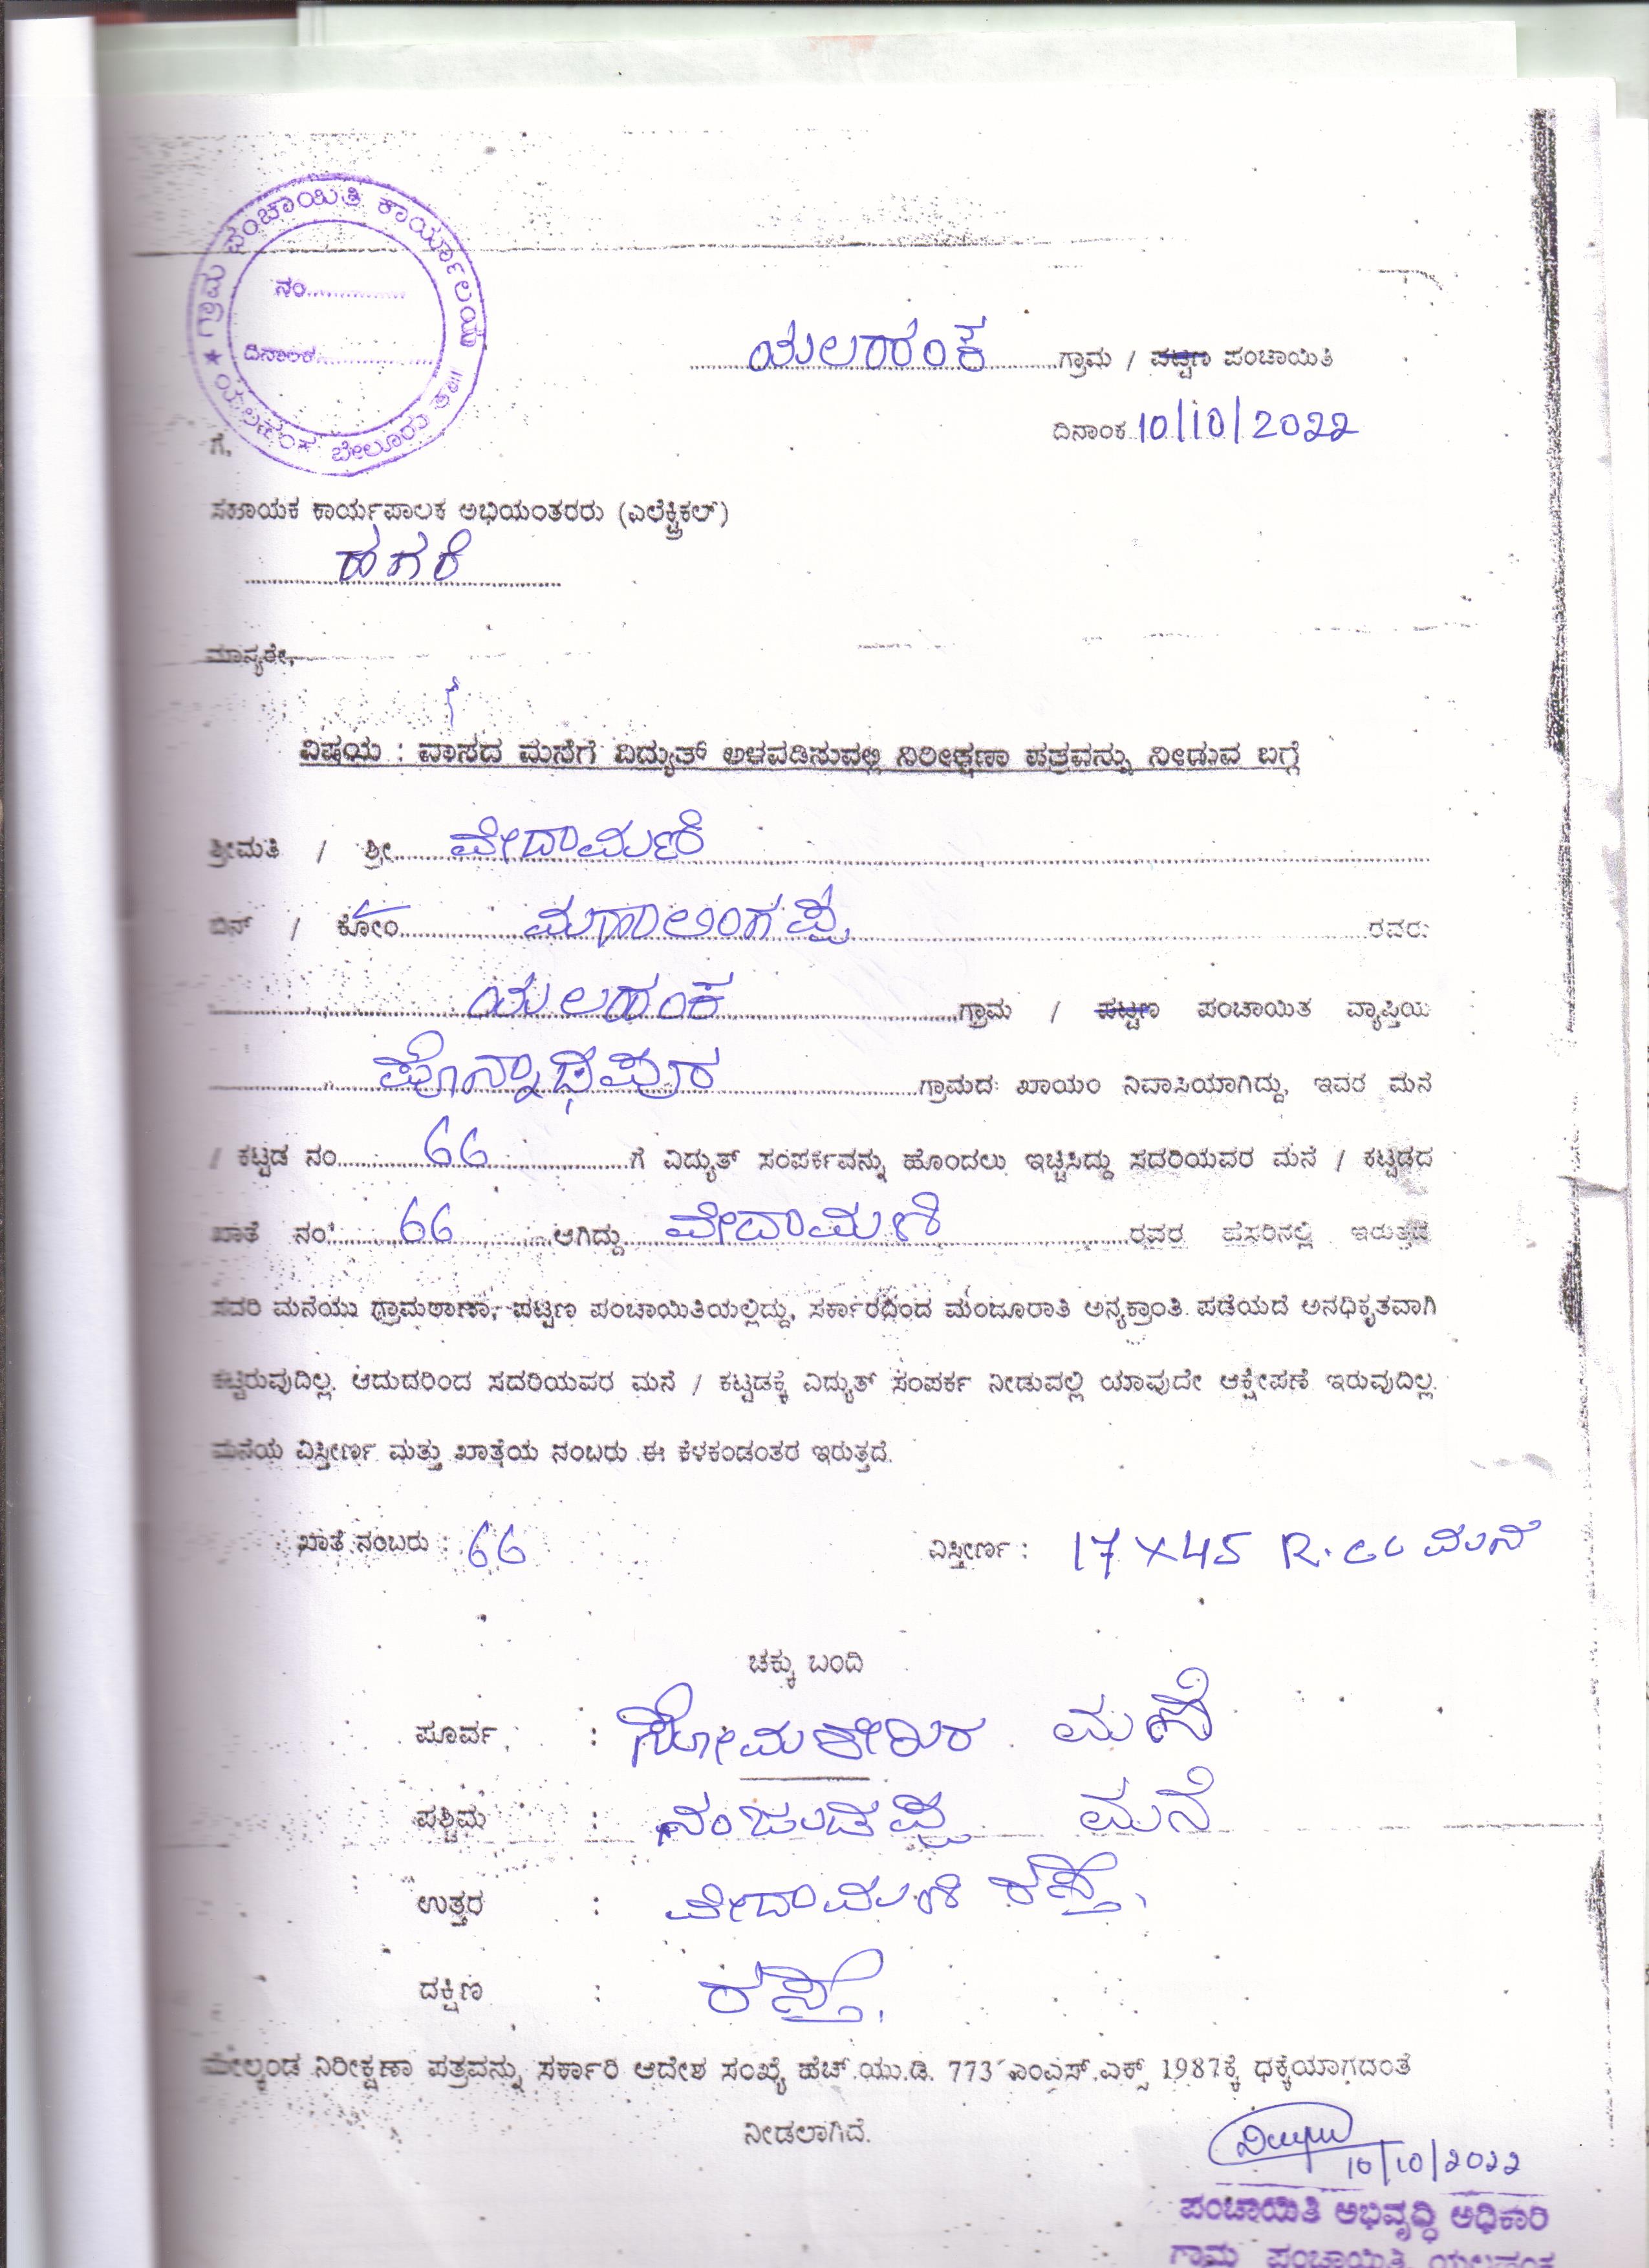 ಗ್ರಾಮ ಪಂಚಾಯಿತಿ ಕಾರ್ಯಾಲಯ
ನಂ
ದಿನಾಂಕ
ಯಲಹಂಕ ಬೇಲೂರು ತಾ॥
ಯಲಹಂಕ ಗ್ರಾಮ / ಪಟ್ಟಣ ಪಂಚಾಯಿತಿ
ದಿನಾಂಕ 10/10/2022
ಗೆ,
ಸಹಾಯಕ ಕಾರ್ಯಪಾಲಕ ಅಭಿಯಂತರರು (ಎಲೆಕ್ಟ್ರಿಕಲ್)
ಹಗರೆ
ಮಾನ್ಯರೇ,
ವಿಷಯ : ವಾಸದ ಮನೆಗೆ ವಿದ್ಯುತ್ ಅಳವಡಿಸುವಲ್ಲಿ ನಿರೀಕ್ಷಣಾ ಪತ್ರವನ್ನು ನೀಡುವ ಬಗ್ಗೆ
ಶ್ರೀಮತಿ / ಶ್ರೀ ವೇದಾಮಣಿ
ಬಿನ್ / ಕೋಂ ಮಹಾಲಿಂಗಪ್ಪ ರವರು
ಯಲಹಂಕ ಗ್ರಾಮ / ಪಟ್ಟಣ ಪಂಚಾಯಿತ ವ್ಯಾಪ್ತಿಯ
ಪೊನ್ನಾಥಪುರ ಗ್ರಾಮದ ಖಾಯಂ ನಿವಾಸಿಯಾಗಿದ್ದು, ಇವರ ಮನೆ
/ ಕಟ್ಟಡ ನಂ 66 ಗೆ ವಿದ್ಯುತ್ ಸಂಪರ್ಕವನ್ನು ಹೊಂದಲು ಇಚ್ಚಸಿದ್ದು ಸದರಿಯವರ ಮನೆ / ಕಟ್ಟಡದ
ಖಾತೆ ನಂ 66 ಆಗಿದ್ದು ವೇದಾಮಣಿ ರವರ ಹೆಸರಿನಲ್ಲಿ ಇರುತ್ತದೆ
ಸದರಿ ಮನೆಯು ಗ್ರಾಮಠಾಣಾ, ಪಟ್ಟಣ ಪಂಚಾಯಿತಿಯಲ್ಲಿದ್ದು, ಸರ್ಕಾರದಿಂದ ಮಂಜೂರಾತಿ ಅನ್ಯಕ್ರಾಂತಿ ಪಡೆಯದೆ ಅನಧಿಕೃತವಾಗಿ
ಕಟ್ಟಿರುವುದಿಲ್ಲ. ಆದುದರಿಂದ ಸದರಿಯವರ ಮನೆ / ಕಟ್ಟಡಕ್ಕೆ ವಿದ್ಯುತ್ ಸಂಪರ್ಕ ನೀಡುವಲ್ಲಿ ಯಾವುದೇ ಆಕ್ಷೇಪಣೆ ಇರುವುದಿಲ್ಲ.
ಮನೆಯ ವಿಸ್ತೀರ್ಣ ಮತ್ತು ಖಾತೆಯ ನಂಬರು ಈ ಕೆಳಕಂಡಂತರ ಇರುತ್ತದೆ.
ಖಾತೆ ನಂಬರು : 66 ವಿಸ್ತೀರ್ಣ : 17 X 45 R.CC ಮನೆ
ಚಕ್ಕು ಬಂದಿ
ಪೂರ್ವ : ಸೋಮಶೇಖರ ಮಣೆ
ಪಶ್ಚಿಮ : ನಂಜುಂಡಪ್ಪ ಮನೆ
ಉತ್ತರ : ವೇದಾಮಣಿ ರಸ್ತೆ.
ದಕ್ಷಿಣ : ರಸ್ತೆ.
ಮೇಲ್ಕಂಡ ನಿರೀಕ್ಷಣಾ ಪತ್ರವನ್ನು ಸರ್ಕಾರಿ ಆದೇಶ ಸಂಖ್ಯೆ ಹೆಚ್.ಯು.ಡಿ. 773 ಎಂಎಸ್.ಎಕ್ಸ್ 1987ಕ್ಕೆ ಧಕ್ಕೆಯಾಗದಂತೆ
ನೀಡಲಾಗಿದೆ.
10/10/2022
ಪಂಚಾಯಿತಿ ಅಭಿವೃದ್ಧಿ ಅಧಿಕಾರಿ
ಗ್ರಾಮ ಪಂಚಾಯಿತಿ ಯಲಹಂಕ